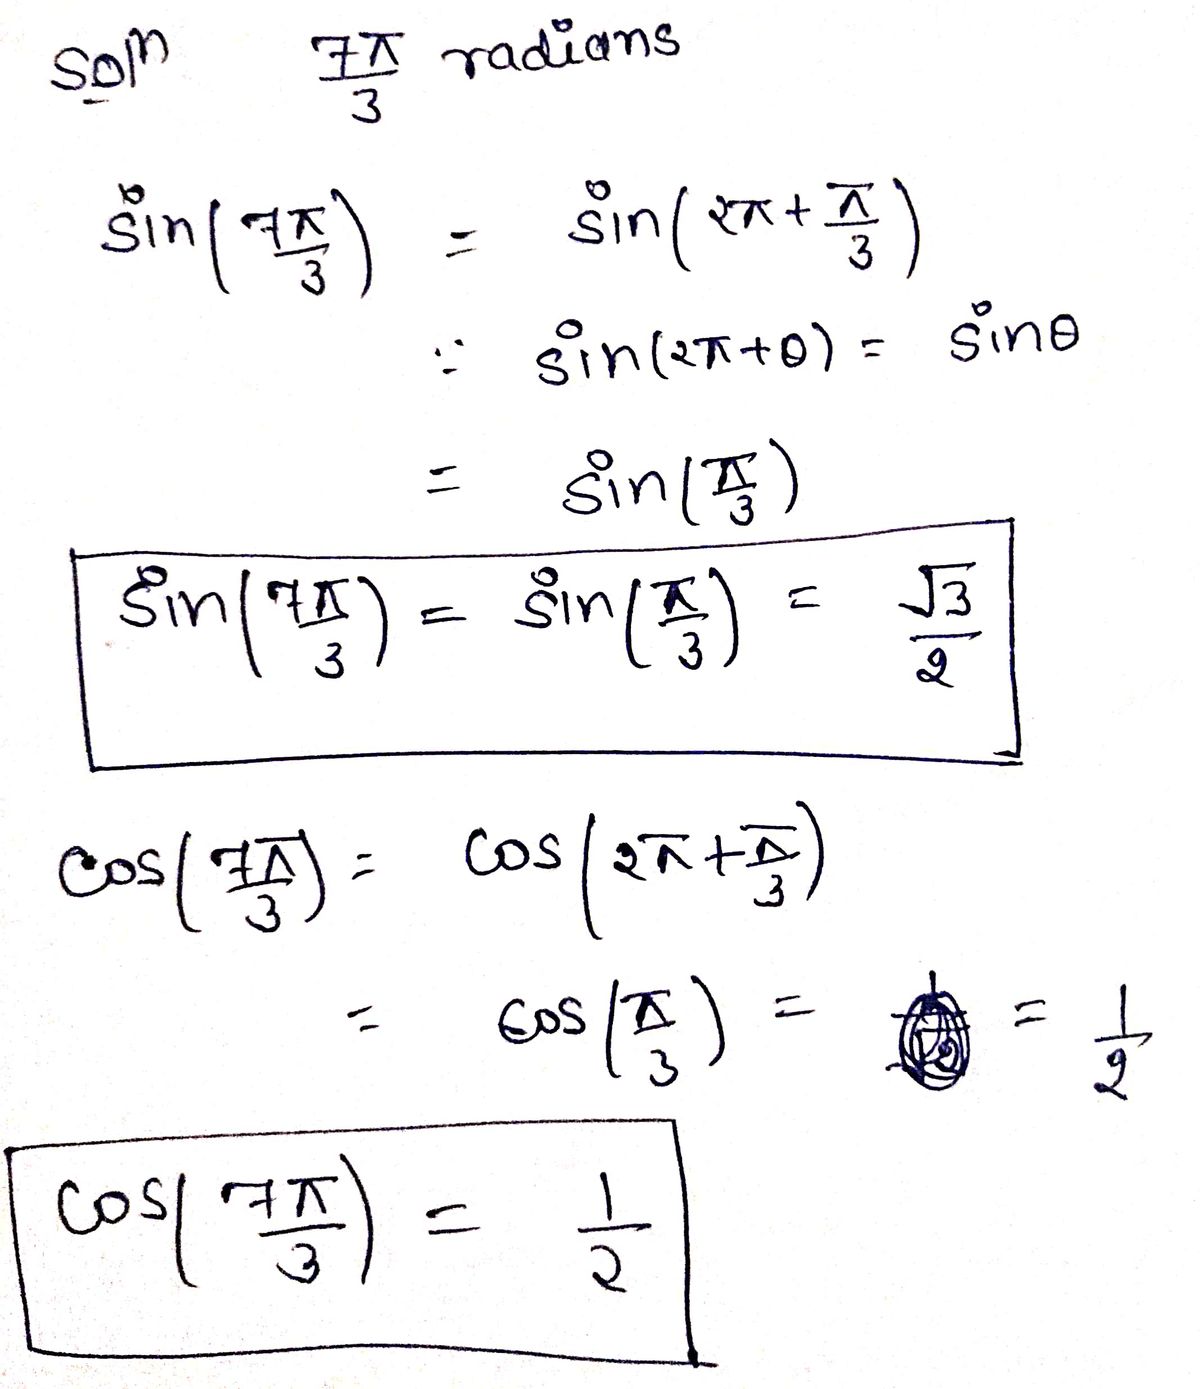 Soln 7π/3 radians
sin(7π/3) = sin(2π+π/3)
∵ sin(2π+θ) = sinθ
= sin(π/3)
sin(7π/3) = sin(π/3) = √3/2
cos(7π/3) = cos(2π+π/3)
= cos(π/3) = = 1/2
cos(7π/3) = 1/2